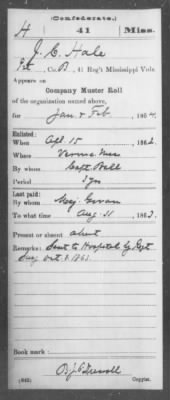 (Confederate.)
H 41 Miss.
J. C. Hale
Pvt, Co. B, 41 Reg't Mississippi Vols.
Appears on
Company Muster Roll
of the organization named above,
for Jan & Feb, 1864.
Enlisted:
When Apl. 15, 1862.
Where Verona Miss
By whom Capt. Ball
Period 3 yrs
Last paid:
By whom Maj.
To what time Aug. 31, 1863.
Present or absent absent
Remarks: Sent to Hospital by Regt
Surg Oct. 1. 1863.
Book mark:
(642) Copyist.